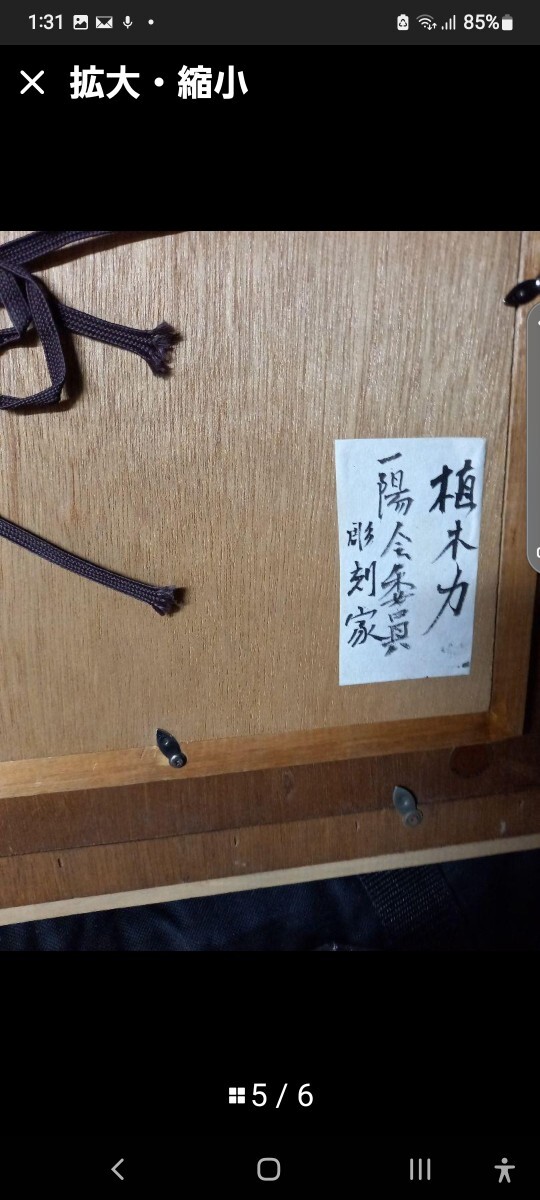 1:31
85%
拡大・縮小
植木力
一陽会委員
彫刻家
5 / 6